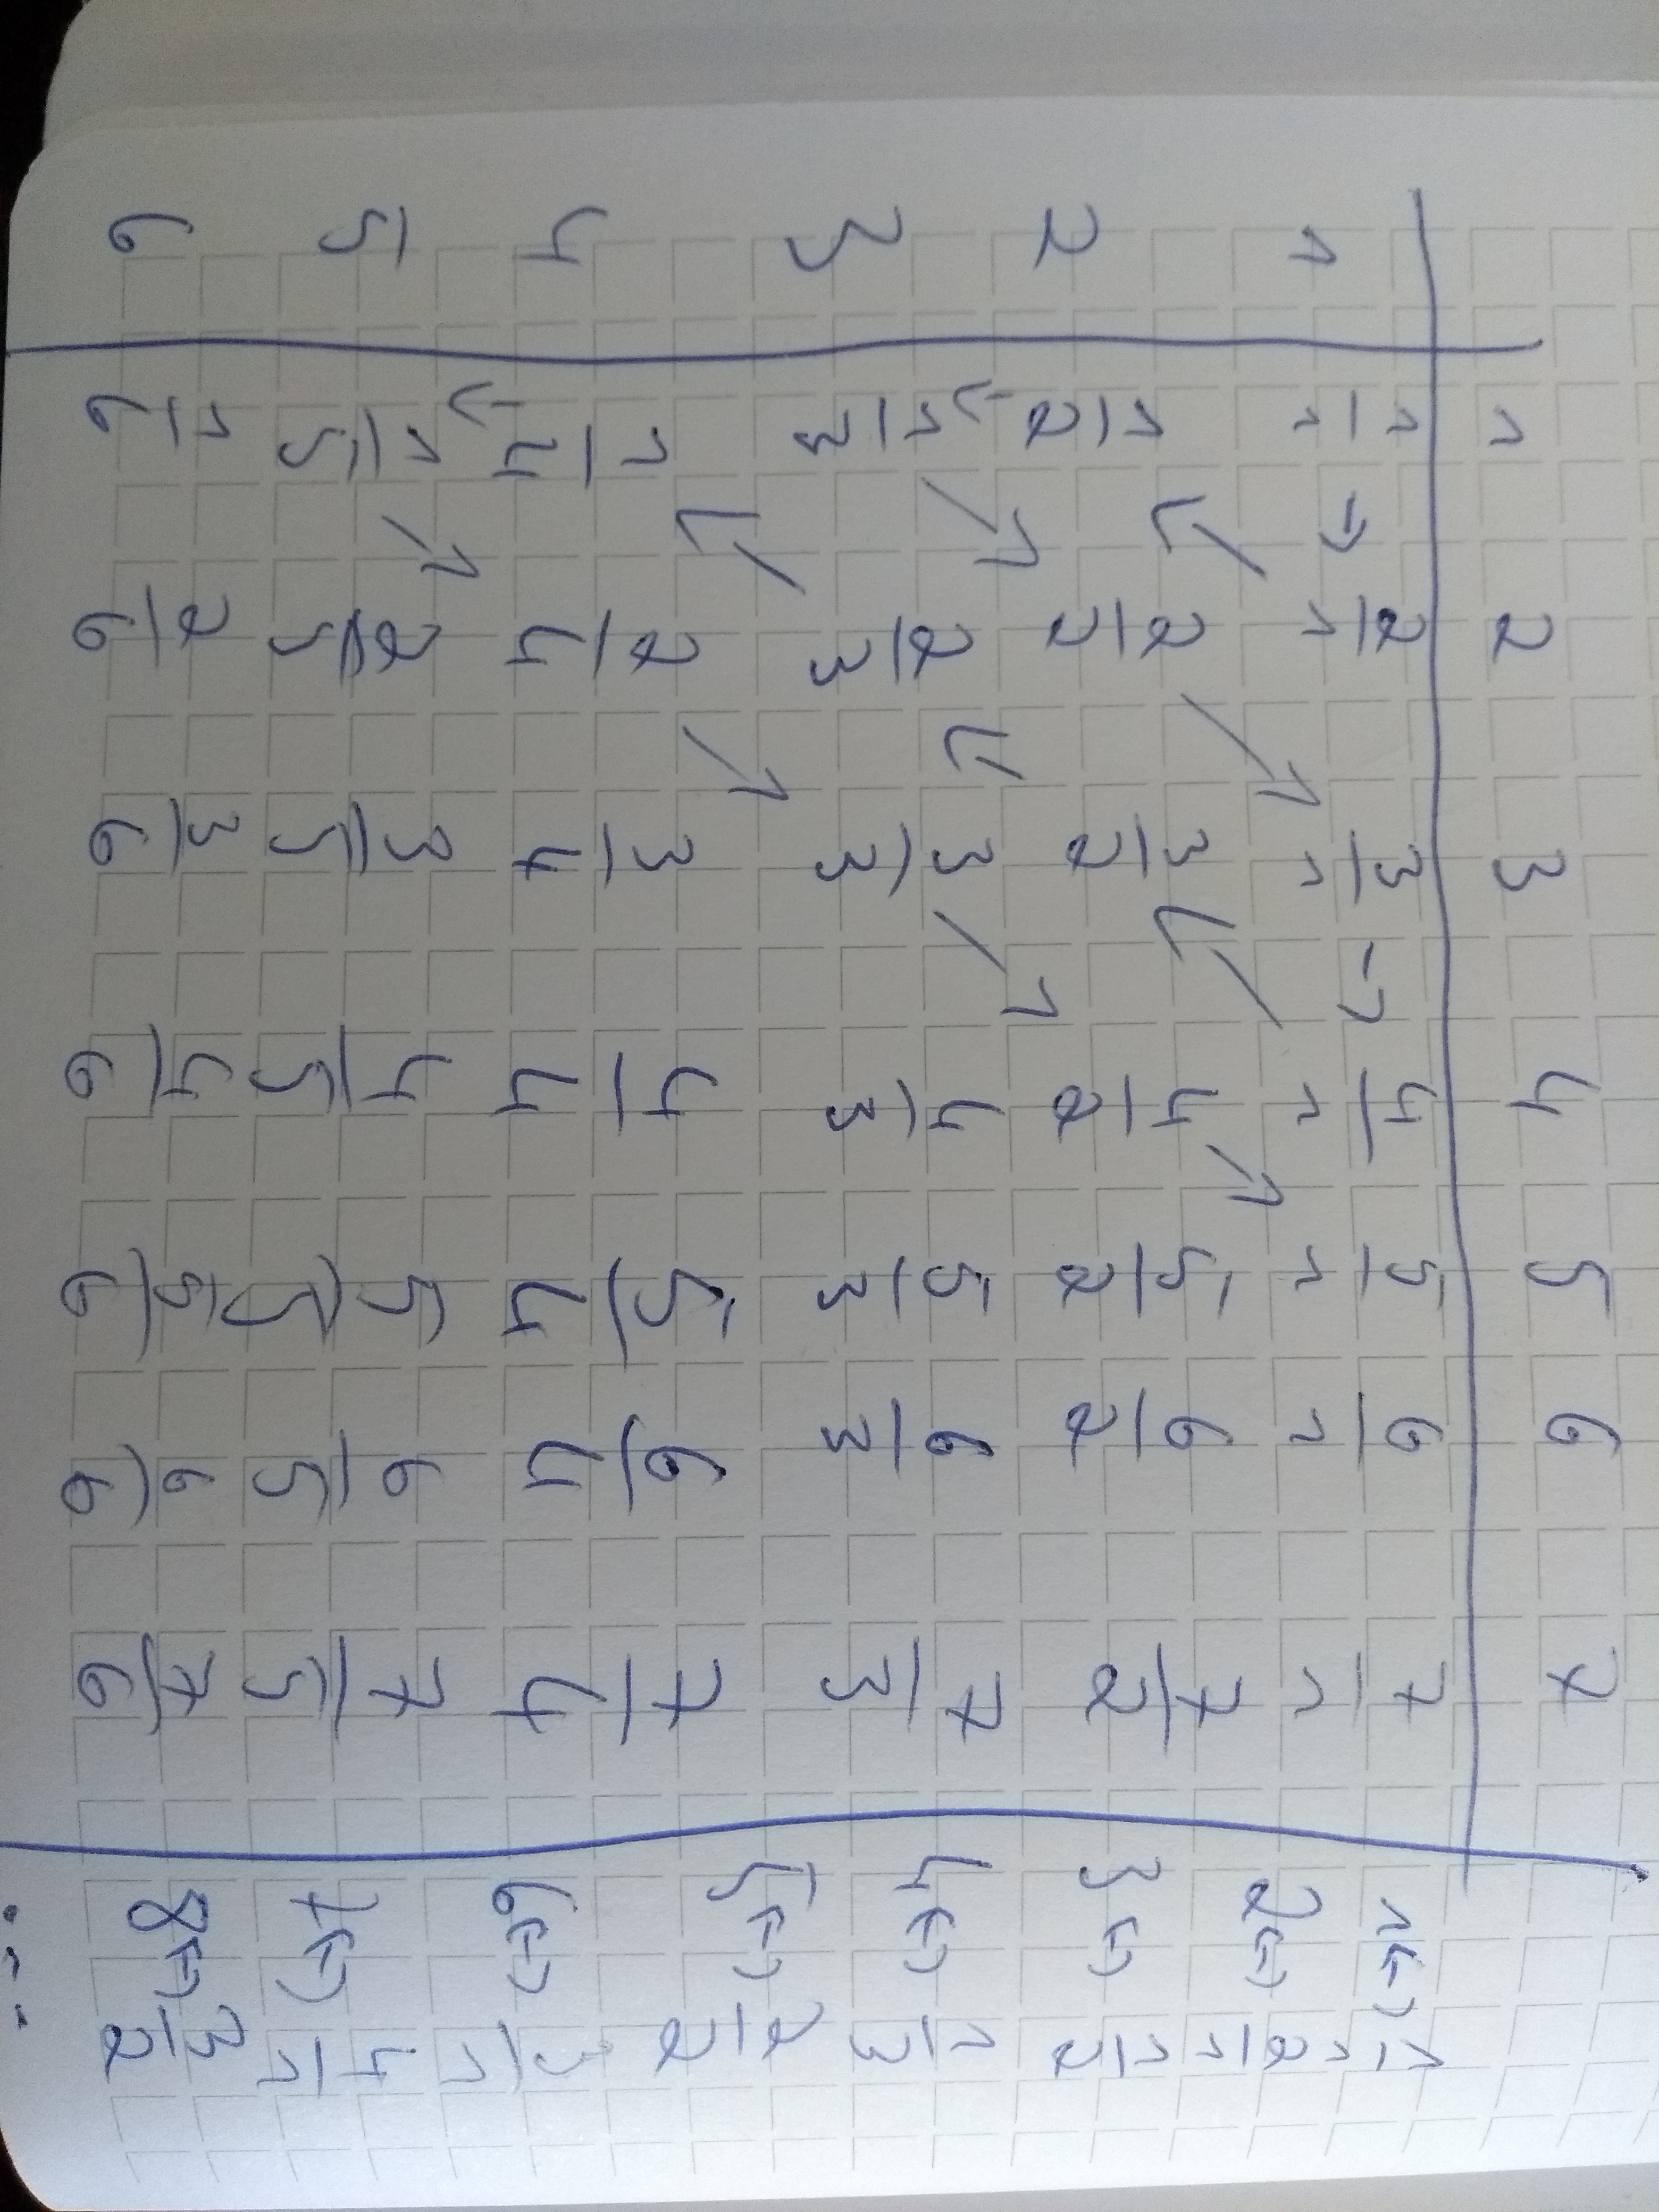 1 2 3 4 5 6 7
1 1/1 → 2/1 3/1 → 4/1 5/1 6/1 7/1 1 ↔ 1/1
2 1/2 2/2 3/2 4/2 5/2 6/2 7/2 2 ↔ 2/1
3 1/3 2/3 3/3 4/3 5/3 6/3 7/3 3 ↔ 1/2
4 1/4 2/4 3/4 4/4 5/4 6/4 7/4 4 ↔ 1/3
5 1/5 2/5 3/5 4/5 5/5 6/5 7/5 5 ↔ 2/2
6 1/6 2/6 3/6 4/6 5/6 6/6 7/6 6 ↔ 3/1
7 ↔ 4/1
8 ↔ 3/2
...